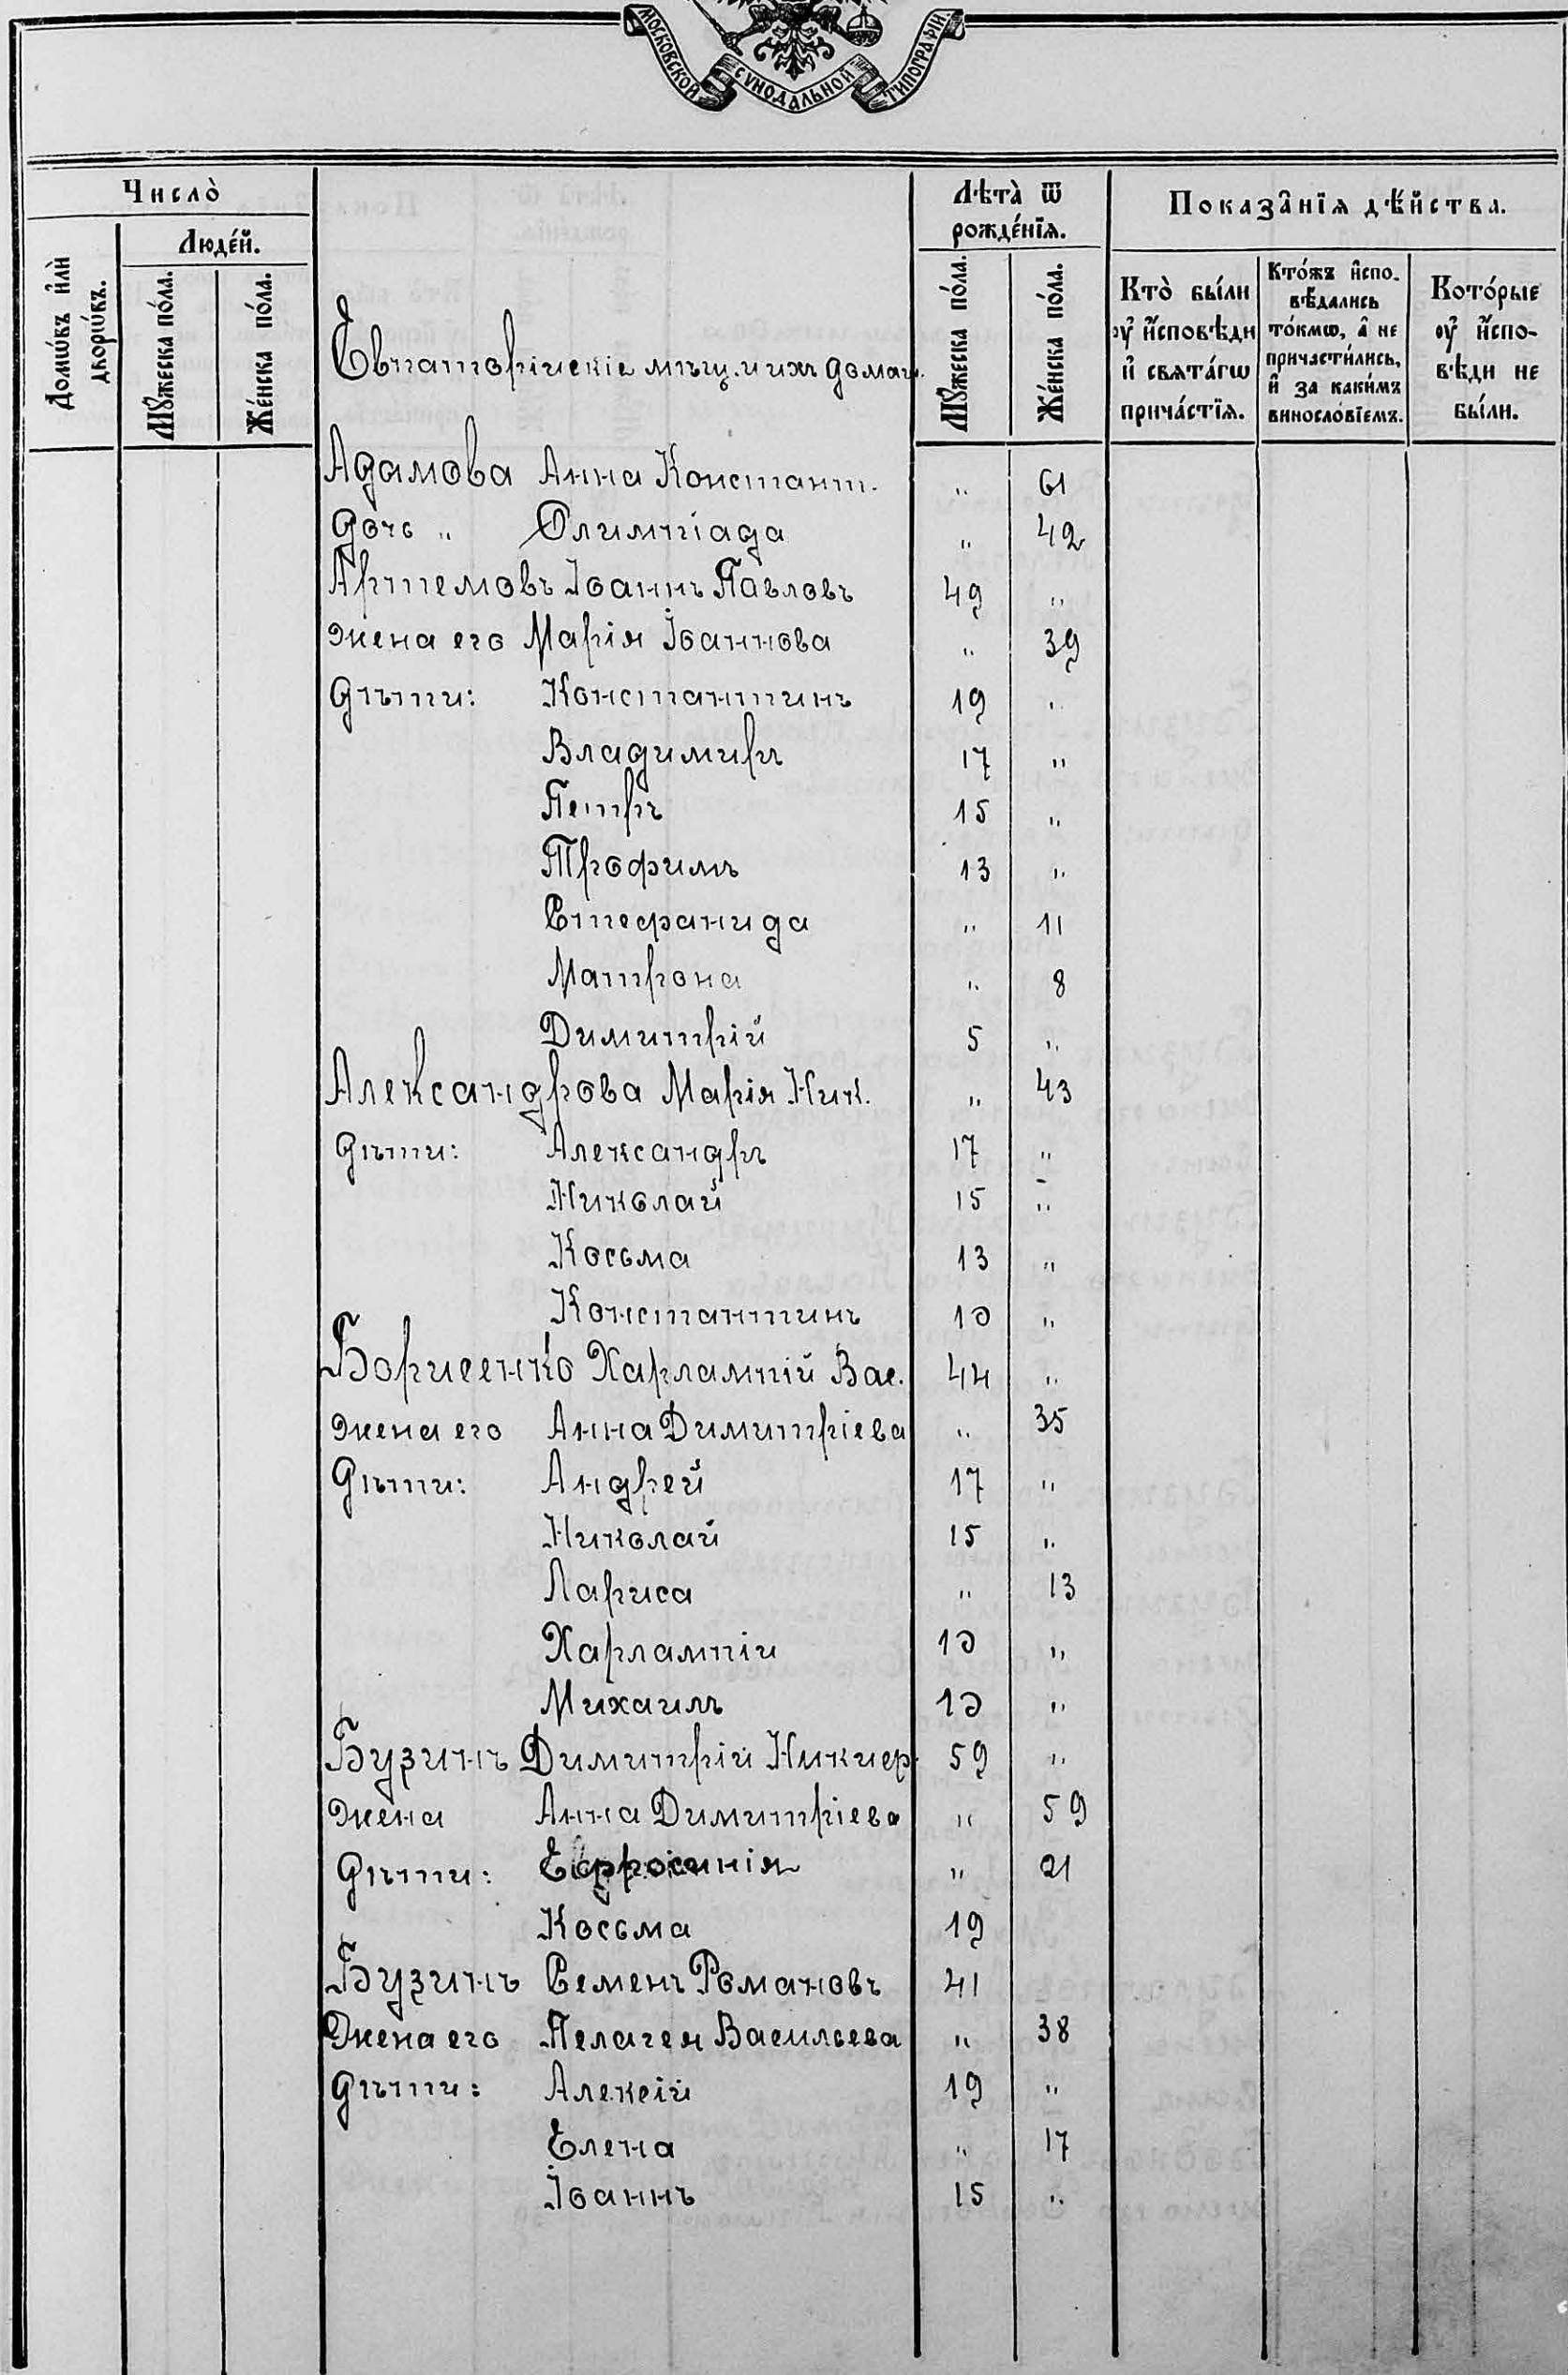 МОСКОВСКОЙ СѴНОДАЛЬНОЙ ТИПОГРАФІИ.
Число̀
Люде́й.
Домѡ́въ и҆лѝ дворѡ́въ.
Мꙋ́жеска по́ла.
Же́нска по́ла.
Лѣта̀ ѿ рожде́нїѧ.
Мꙋ́жеска по́ла.
Же́нска по́ла.
Показа̑нїѧ дѣ́йства.
Кто̀ бы́ли оу҆ и҆́сповѣди и҆ свѧта́гѡ прича́стїѧ.
Кто́жъ и҆сповѣ́дались то́кмѡ, а҆ не причасти́лись, и҆ за каки́мъ винослові́емъ.
Кото́рые оу҆ и҆́сповѣди не бы́ли.
Евпаторійскіе мѣщ. и ихъ домаш.
Адамова Анна Констант. „ 61
дочь „ Олимпіада „ 42
Артемовъ Іоаннъ Павловъ 49 „
жена его Марія Іоаннова „ 39
дѣти: Константинъ 19 „
Владимиръ 17 „
Петръ 15 „
Трофимъ 13 „
Стефанида „ 11
Матрона „ 8
Димитрій 5 „
Александрова Марія Ник. „ 43
дѣти: Александръ 17 „
Николай 15 „
Косьма 13 „
Константинъ 10 „
Борисенко Харлампій Вас. 44 „
жена его Анна Димитріева „ 35
дѣти: Андрей 17 „
Николай 15 „
Лариса „ 13
Харлампіи 10 „
Михаилъ 10 „
Бузинъ Димитрій Никиф. 59 „
жена Анна Димитріева „ 59
дѣти: Ефросинія „ 21
Косьма 19
Бузинъ Семенъ Романовъ 41
Жена его Пелагея Васильева „ 38
дѣти: Алексій 19 „
Елена „ 17
Іоаннъ 15 „